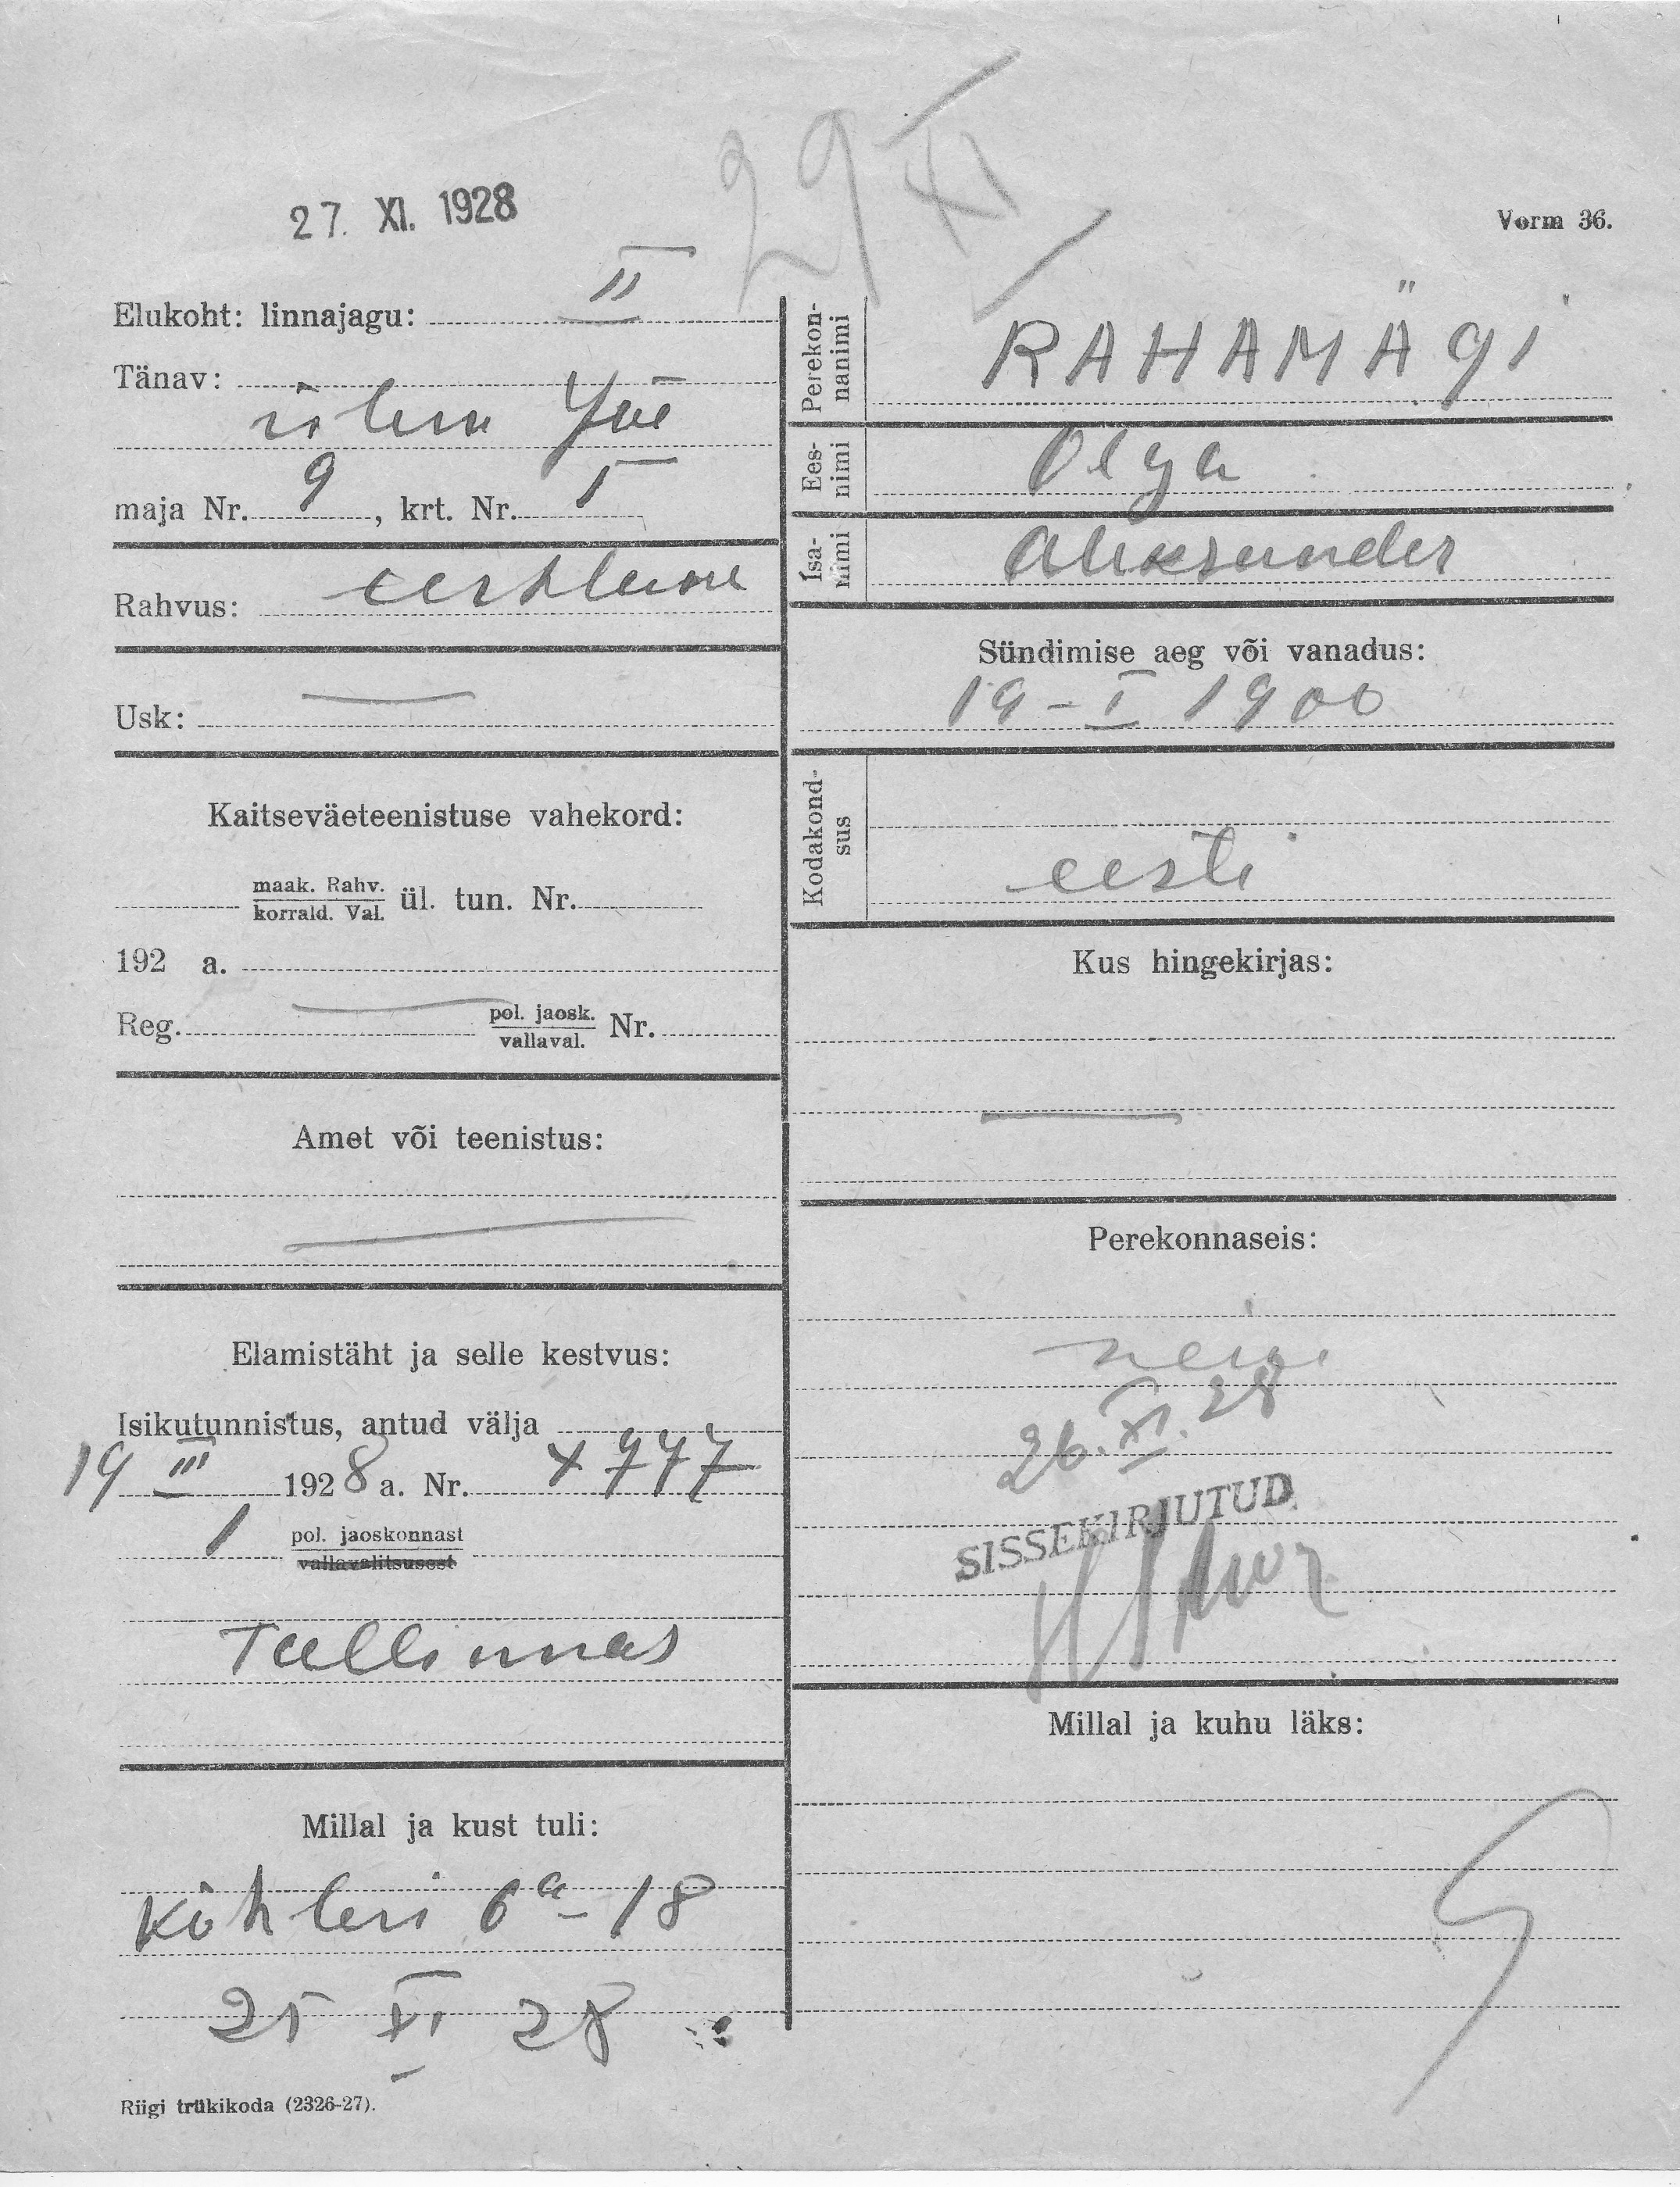 29 XI
27. XI. 1928
Vorm 36.
Elukoht: linnajagu: II
Tänav:
ülem Jõe
maja Nr. 9, krt. Nr. 5
Rahvus: eestlane
Usk: —
Kaitseväeteenistuse vahekord:
maak. Rahv.
korrald. Val. ül. tun. Nr.
192 a.
Reg. — pol. jaosk.
vallaval. Nr.
Amet või teenistus:
—
Elamistäht ja selle kestvus:
Isikutunnistus, antud välja
19 III 1928 a. Nr. 4777
1 pol. jaoskonnast
vallavalitsusest
Tallinnas
Millal ja kust tuli:
Köhleri 6a-18
25 XI 28
Riigi trükikoda (2326-27).
Perekon-
nanimi RAHAMÄGI
Ees-
nimi Olga
Isa-
nimi Aleksander
Sündimise aeg või vanadus:
19-I 1900
Kodakond-
sus eesti
Kus hingekirjas:
—
Perekonnaseis:
neiu
26. XI. 28
SISSEKIRJUTUD
Millal ja kuhu läks: